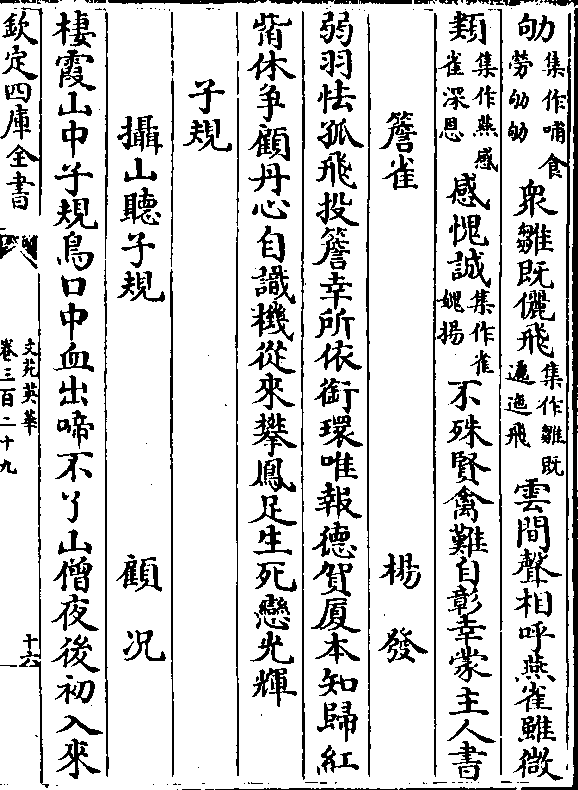 劬集作哺食勞劬劬衆雛既儷飛集作雛既邐迤飛雲間聲相呼燕雀雖微
類集作燕感雀深恩感愧誠集作雀媿揚不殊賢禽難自彰幸蒙主人書
簷雀 楊發
弱羽怯孤飛投簷幸所依銜環唯報德賀厦本知歸紅
觜休争顧丹心自識機從來攀鳳足生死戀光輝
子規
攝山聽子規 顧况
棲霞山中子規鳥口中血出啼不了山僧夜後初入來
欽定四庫全書
文苑英華
卷三百二十九
十六